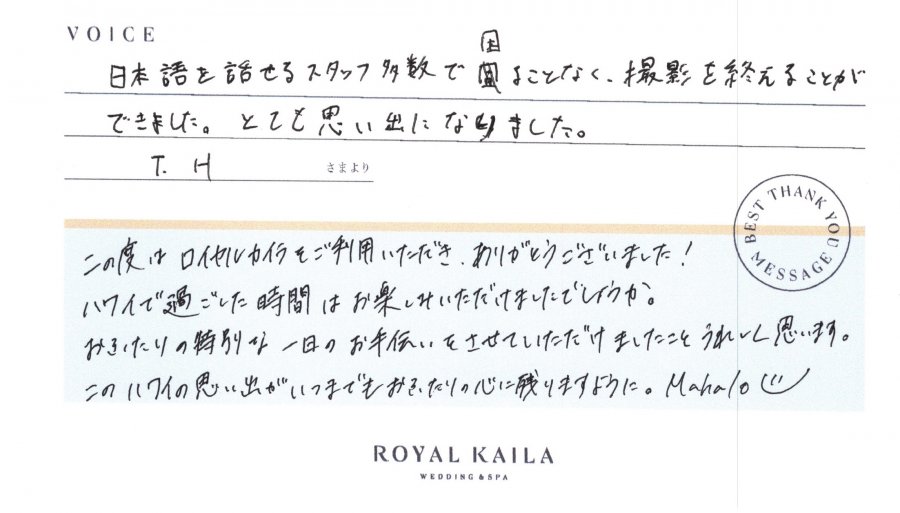 VOICE
日本語を話せるスタッフ多数で困ることなく、撮影を終えることが
できました。とても思い出になりました。
T. H さまより
BEST THANK YOU MESSAGE
この度はロイヤルカイラをご利用いただき、ありがとうございました!
ハワイで過ごした時間はお楽しみいただけましたでしょうか。
おふたりの特別な一日のお手伝いをさせていただけましたことうれしく思います。
このハワイの思い出がいつまでもおふたりの心に残りますように。Mahalo
ROYAL KAILA
WEDDING & SPA